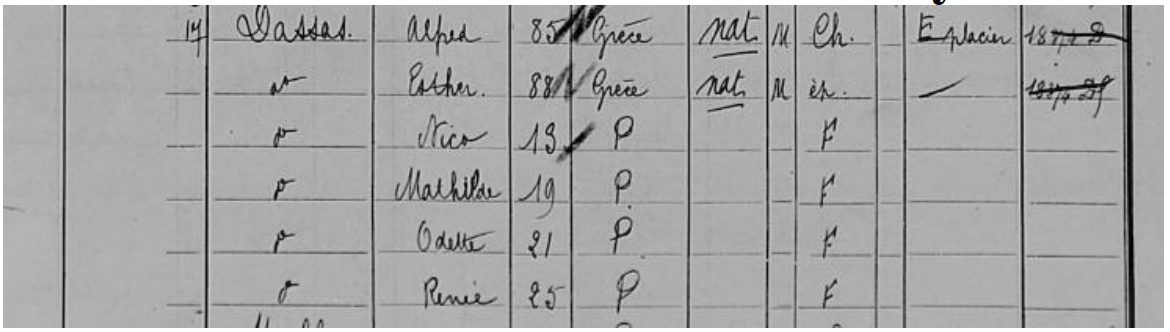 17 Dassas. Alfred 85 Grèce nat. M Ch. E placier
d° Esther. 88 Grèce nat. M ép.
d° Nico 13 P F
d° Mathilde 19 P. F
d° Odette 21 P F
d° Renée 25 P F